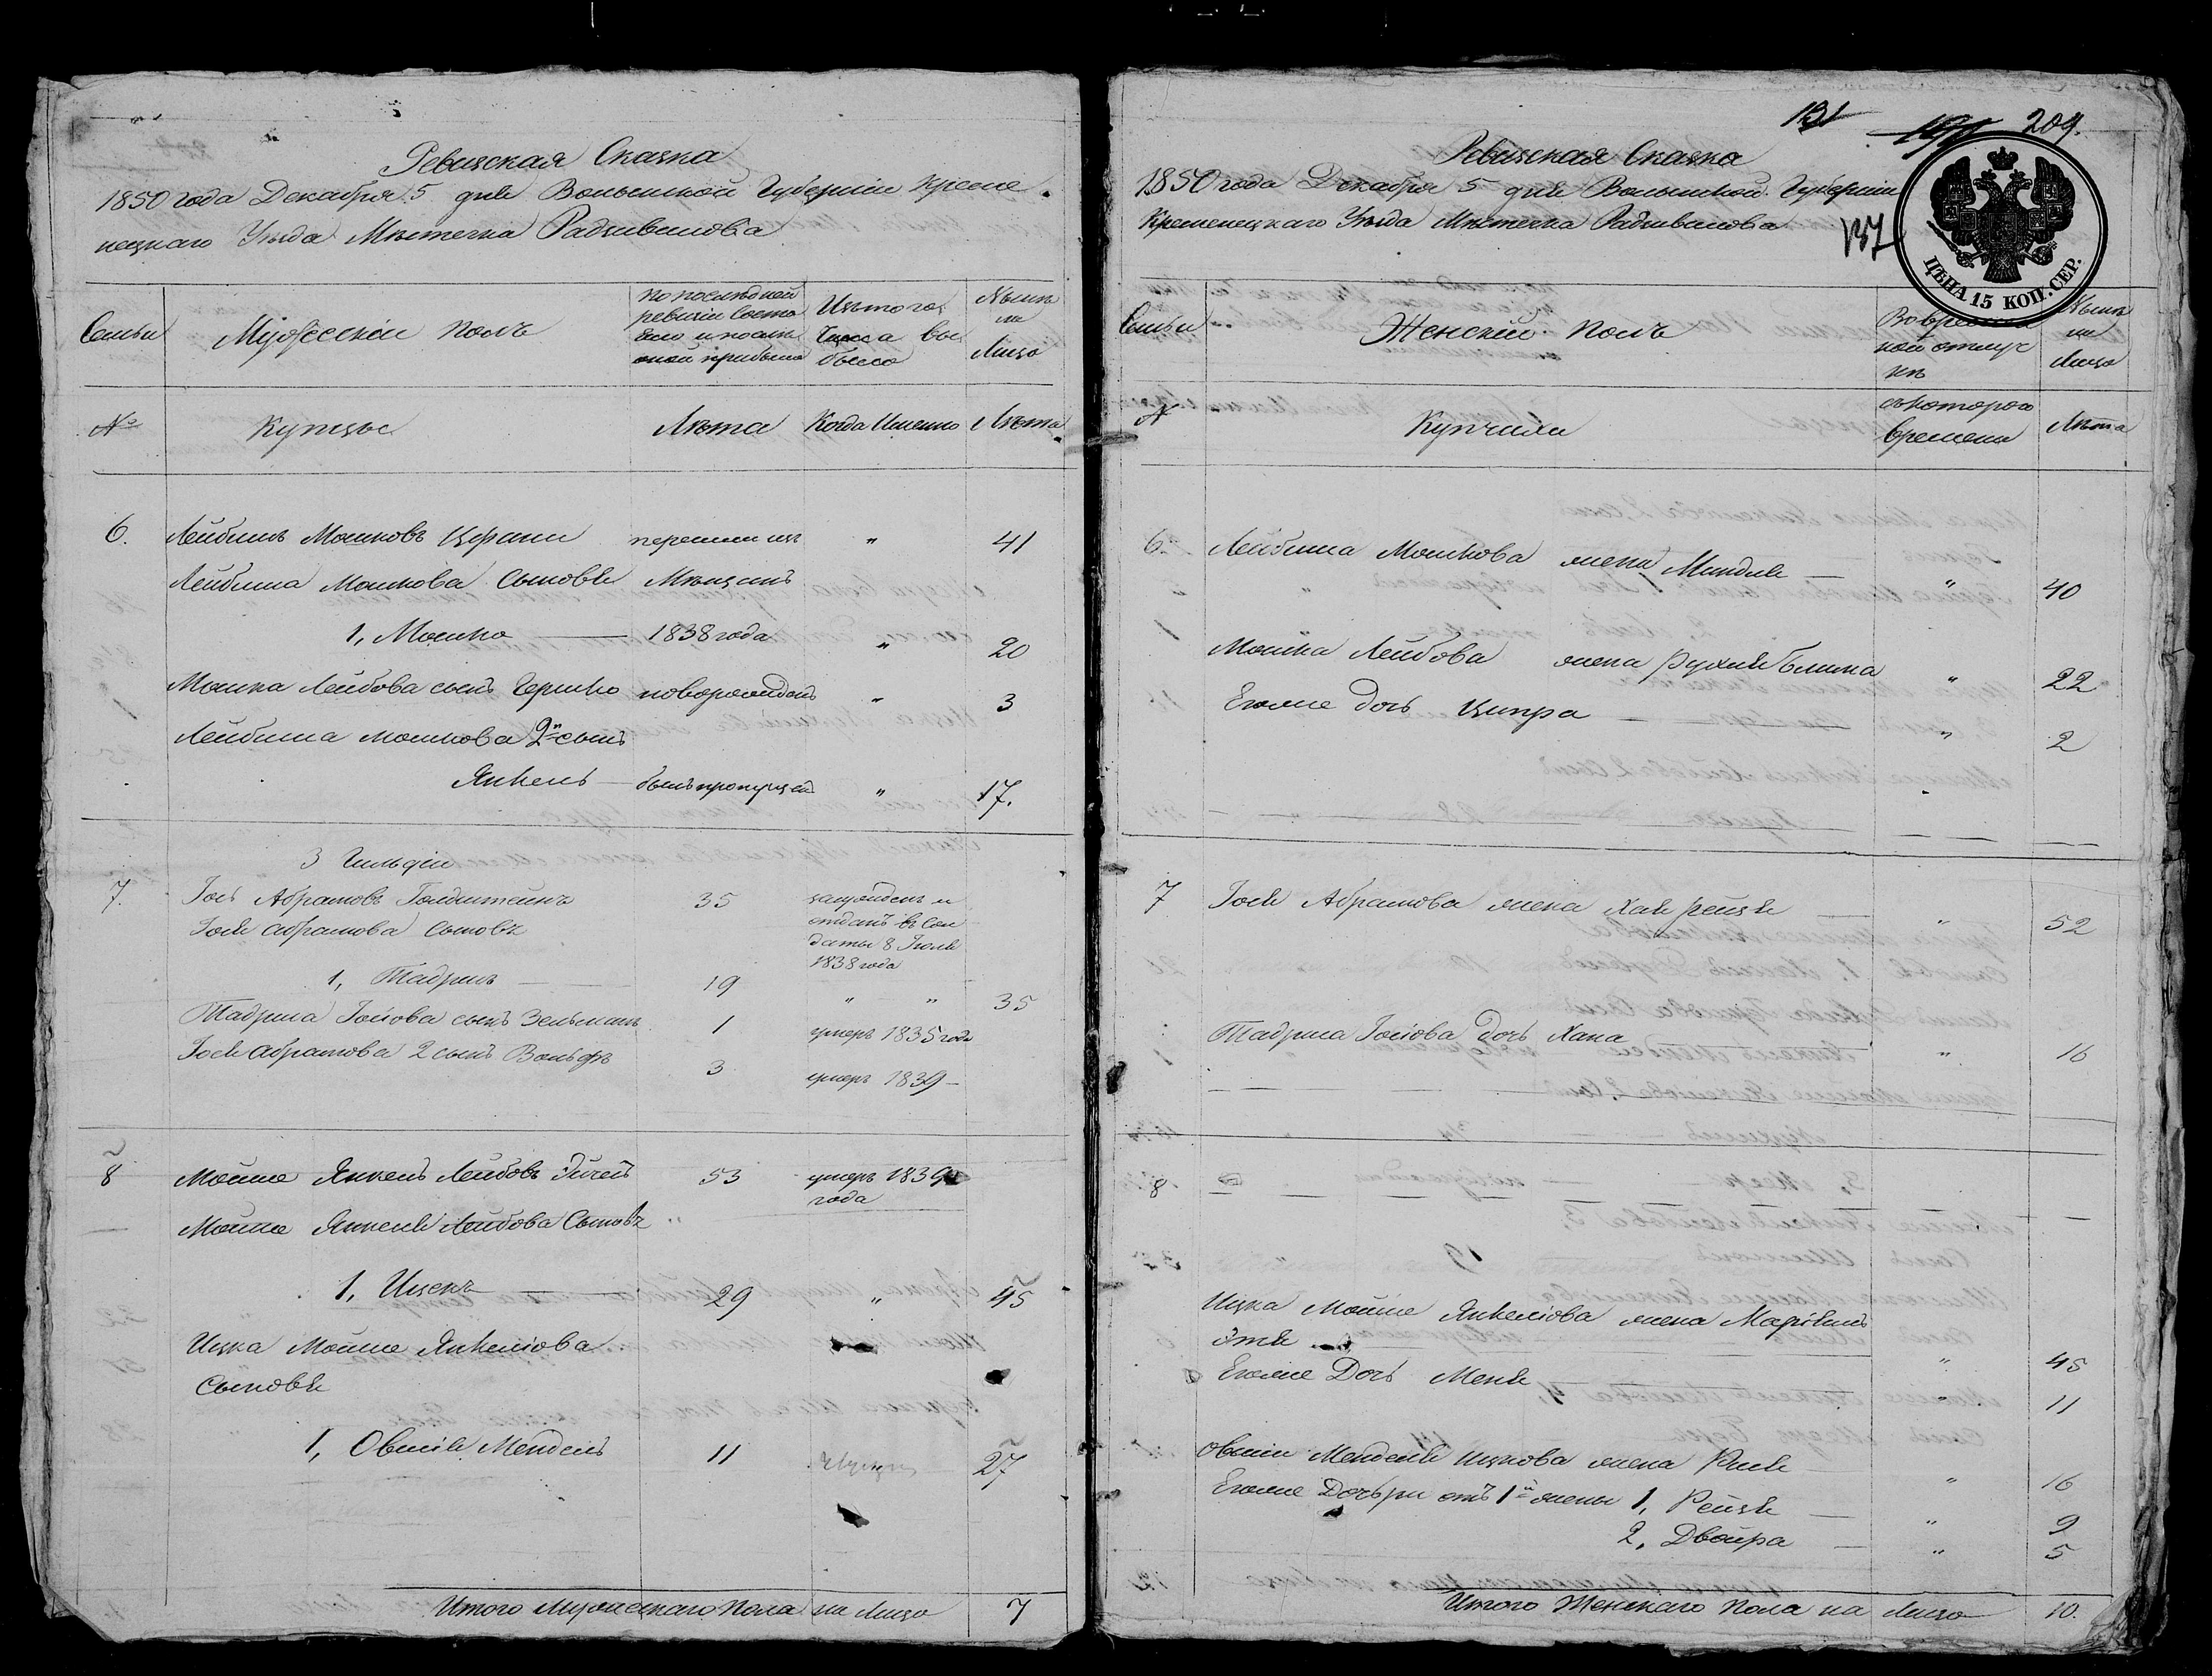 Ревизская Сказка
1850 года Декабря 5 дня Волынской Губернии Креме
нецкаго Уезда Местечка Радзивилова
Семьи
Мужеский полъ
по последней
ревизии состо
яло и после
оной прибыло
Изъ того
числа вы
было
Ныне
на
Лицо
№
Купцы
Лета
Когда Именно
Лета
6.
Лейбишъ Мошковъ
перешли изъ
"
41
Лейбиша Мошкова Сыновья
Мещанъ
1, Мошко
1838 года
"
20
Мошка Лейбова сынъ Гершко
новорожденъ
"
3
Лейбиша Мошкова 2й сынъ
Янкель
былъ пропущен
"
17.
3 Гильдии
7.
Іось Абрамовъ Голдштейнъ
35
отданъ въ Сол
даты 8 Іюля
1838 года
Іося Абрамова Сыновъя
1, Шадрыль
19
" "
35
Іосіова сынъ Зельманъ
1
умеръ 1835 года
Іося Абрамова 2 сынъ Вольфъ
3
умеръ 1839
8
Мошко Янкель Лейбовъ
53
умеръ 1839
года
Мошко Янкеля Лейбова Сыновья
"
1, Ицекъ
29
"
45
Ицка Мошко Янкеліова
Сыновья
1, Овшія Мендель
11
27
Итого Мужескаго Пола на Лицо
7
131
191
209.
137
ЦѢНА 15 КОП. СЕР.
Ревизская Сказка
1850 года Декабря 5 дня Волынской Губернии
Кременецкаго Уезда Местечка Радзивилова
Семьи
Женский полъ
Во времен
ной отлуч
ке
Ныне
на
Лицо
№
Купчихи
съ котораго
времени
Лета
6.
Лейбиша Мошкова жена Миндля
"
40
Мошка Лейбова жена Рухля Бейла
"
22
Егоже дочь Ципра
"
2
7
Іося Абрамова жена Хая Рейзя
"
52
Іосіова дочь Хана
"
16
8
Ицка Мошко Янкеліова жена
Этя
"
45
Егоже Дочь Меня
"
11
Овшіи Менделя Ицкова жена Рися
"
16
Егоже Дочери отъ 1й жены 1, Рейзя
"
9
2, Двойра
"
5
Итого Женскаго Пола на Лицо
10.